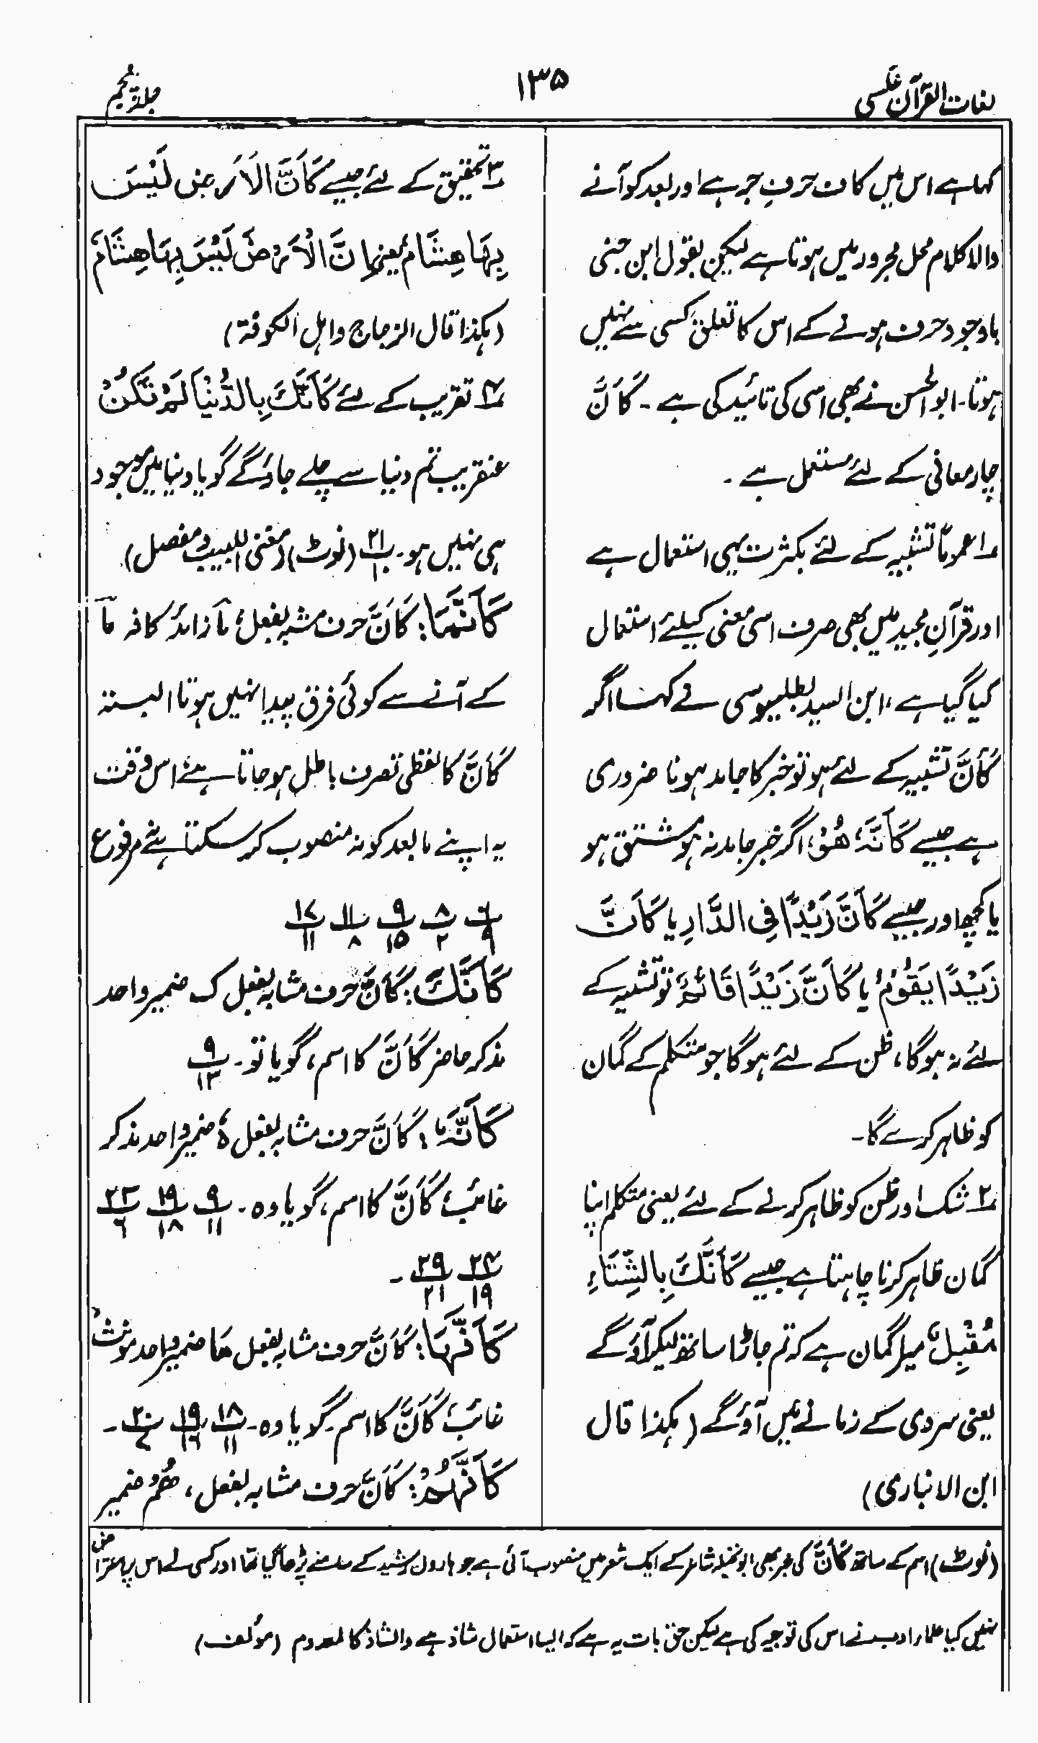 لغات القرآن عکسی
۱۳۵
جلد پنجم
کہا ہے اس میں کاف حرفِ جر ہے اور بعد کو آنے
والا کلام محل مجرور میں ہوتا ہے لیکن بقول ابن جنی
باوجود حرف ہونے کے اس کا تعلق کسی سے نہیں
ہوتا۔ ابوالحسن نے بھی اسی کی تائید کی ہے۔ کَاَنَّ
چار معانی کے لئے مستعمل ہے۔
۱؎ عموماً تشبیہ کے لئے بکثرت یہی استعمال ہے
اور قرآنِ مجید میں بھی صرف اسی معنی کیلئے استعمال
کیا گیا ہے، ابن السید بطلیوسی نے کہا اگر
کَاَنَّ تشبیہ کے لئے ہو تو خبر کا جامد ہونا ضروری
ہے جیسے کَاَنَّہٗ ھُوَ، اگر خبر جامد نہ ہو مشتق ہو
یا کچھ اور جیسے کَاَنَّ زَیْدًا فِی الدَّارِ یا کَاَنَّ
زَیْدًا یَقُوْمُ یا کَاَنَّ زَیْدًا قَائِمٌ تو تشبیہ کے
لئے نہ ہوگا، ظن کے لئے ہوگا جو متکلم کے گمان
کو ظاہر کرے گا۔
۲؎ شک اور ظن کو ظاہر کرنے کے لئے یعنی متکلم اپنا
گمان ظاہر کرنا چاہتا ہے جیسے کَاَنَّکَ بِالشِّتَاءِ
مُقْبِلٌ میرا گمان ہے کہ تم جاڑا ساتھ لیکر آؤگے
یعنی سردی کے زمانے میں آؤگے (ہکذا قال
ابن الانباری)
۳؎ تحقیق کے لئے جیسے کَاَنَّ الْاَرْضَ لَیْسَ
بِہَا ھِشَامٌ یعنی اِنَّ الْاَرْضَ لَیْسَ بِہَا ھِشَامٌ
(ہکذا قال الزجاج و اہل الکوفۃ)
۴؎ تقریب کے لئے کَاَنَّکَ بِالدُّنْیَا لَمْ تَکُنْ
عنقریب تم دنیا سے چلے جاؤگے گویا دنیا میں موجود
ہی نہیں ہو۔ ۲۱/۱ (نوٹ) (مغنی اللبیب و مفصل)
کَاَنَّمَا: کَاَنَّ حرف مشبہ بفعل مَا زائدہ کافہ مَا
کے آنے سے کوئی فرق پیدا نہیں ہوتا البتہ
کَاَنَّ کا لفظی تصرف باطل ہوجاتا ہے، اس وقت
یہ اپنے مابعد کو نہ منصوب کر سکتا ہے نہ مرفوع
۶/۹ ۸/۲ ۹/۱۵ ۱۱/۸ ۱۷/۱۱
کَاَنَّکَ: کَاَنَّ حرف مشابہ بفعل ک ضمیر واحد
مذکر حاضر کَاَنَّ کا اسم، گویا تو۔ ۹/۱۳
کَاَنَّہٗ: کَاَنَّ حرف مشابہ بفعل ہٗ ضمیر واحد مذکر
غائب، کَاَنَّ کا اسم، گویا وہ۔ ۹/۱۱ ۱۹/۱۸ ۲۳/۶
۲۴/۱۹ ۲۹/۲۱۔
کَاَنَّہَا: کَاَنَّ حرف مشابہ بفعل ھَا ضمیر واحد مونث
غائب، کَاَنَّ کا اسم۔ گویا وہ۔ ۱۸/۱۱ ۱۹/۱۶ ۲۰/۷۔
کَاَنَّہُمْ: کَاَنَّ حرف مشابہ بفعل، ھُمْ ضمیر
(نوٹ) اسم کے ساتھ کَاَنَّ کی خبر بھی ابونخیلہ شاعر کے ایک شعر میں منصوب آئی ہے جو ہارون رشید کے سامنے پڑھا گیا تھا اور کسی نے اس پر اعتراض
نہیں کیا علماء ادب نے اس کی توجیہ کی ہے لیکن حق بات یہ ہے کہ ایسا استعمال شاذ ہے والشاذ کالمعدوم (مؤلف)